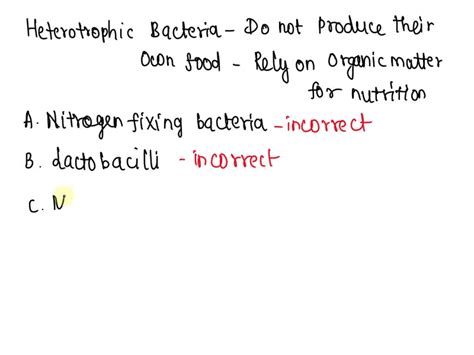 Heterotrophic Bacteria - Do not Produce their
Own food - Rely on Organic matter
for nutrition
A. Nitrogen fixing bacteria - incorrect
B. Lactobacilli - incorrect
C. N